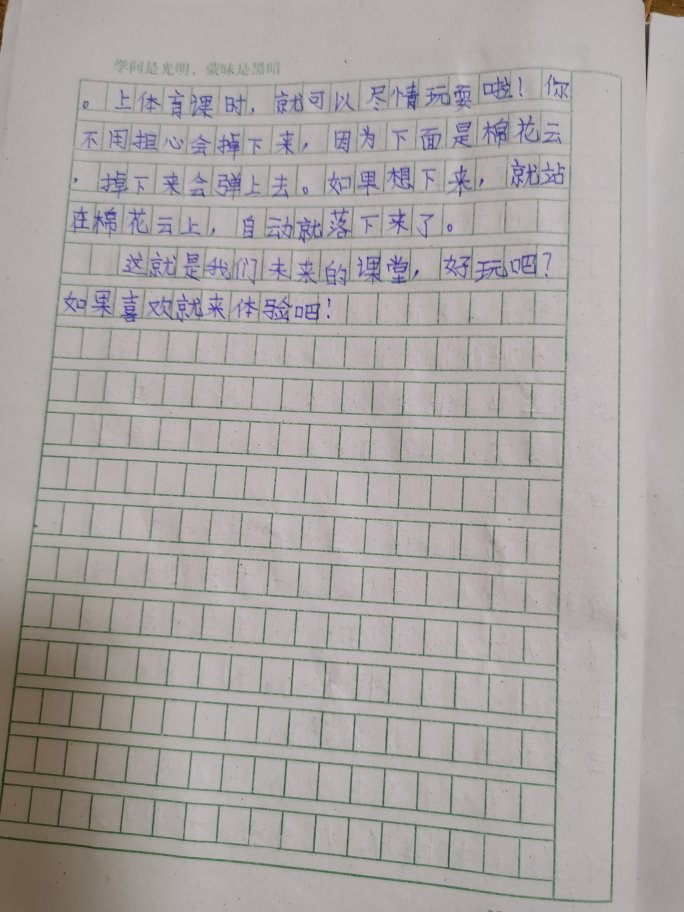 学问是光明，蒙昧是黑暗
。上体育课时，就可以尽情玩耍啦！你
不用担心会掉下来，因为下面是棉花云
，掉下来会弹上去。如果想下来，就站
在棉花云上，自动就落下来了。
这就是我们未来的课堂，好玩吧？
如果喜欢就来体验吧！